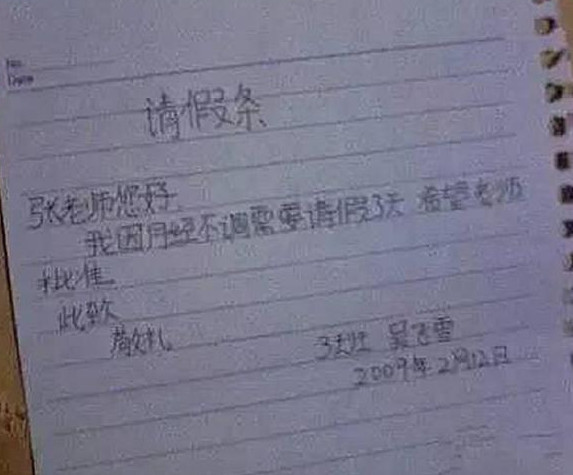 No.
Date
请假条
张老师您好
我因月经不调需要请假3天 希望老师
批准
此致
敬礼
3大班 吴飞雪
2009年2月12日